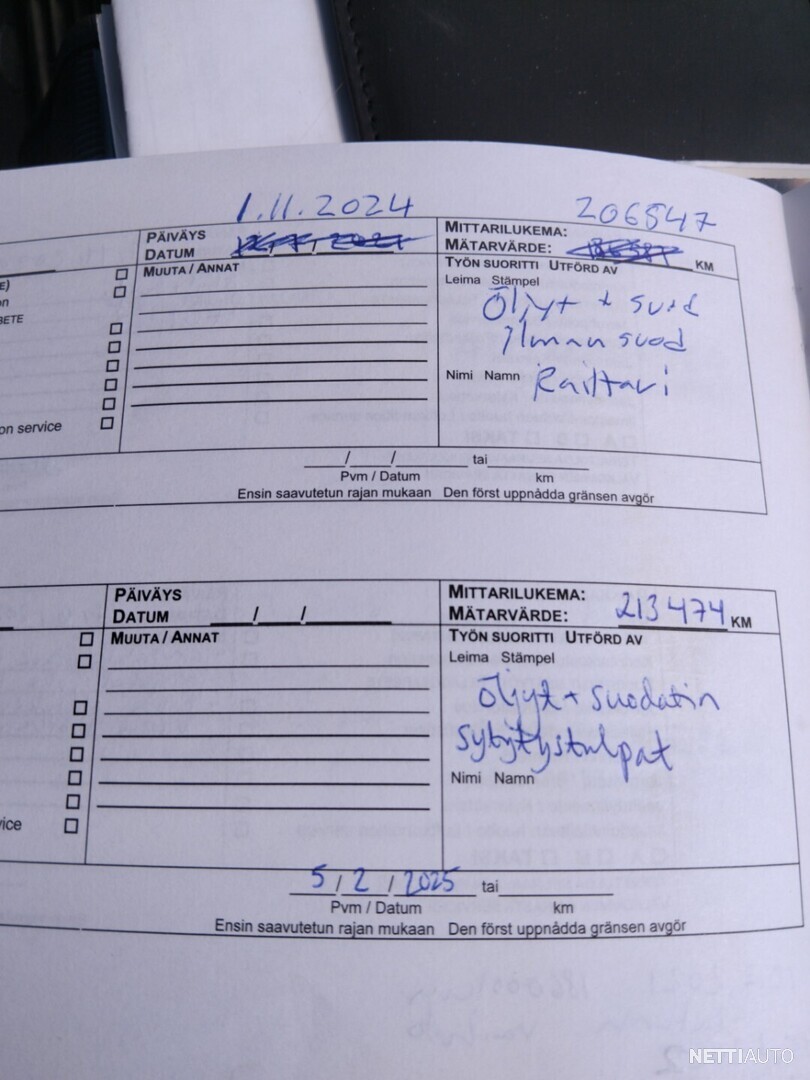 1.11.2024 206547
PÄIVÄYS
DATUM
MITTARILUKEMA:
MÄTARVÄRDE: KM
MUUTA / ANNAT
TYÖN SUORITTI UTFÖRD AV
Leima Stämpel
Öljyt + suod
ilman suod
Nimi Namn Raittari
E)
on
BETE
on service
/ / tai
Pvm / Datum km
Ensin saavutetun rajan mukaan Den först uppnådda gränsen avgör
PÄIVÄYS
DATUM / /
MITTARILUKEMA:
MÄTARVÄRDE: 213474 KM
MUUTA / ANNAT
TYÖN SUORITTI UTFÖRD AV
Leima Stämpel
Öljyt + suodatin
sytytystulpat
Nimi Namn
vice
5 / 2 / 2025 tai
Pvm / Datum km
Ensin saavutetun rajan mukaan Den först uppnådda gränsen avgör
NETTIAUTO